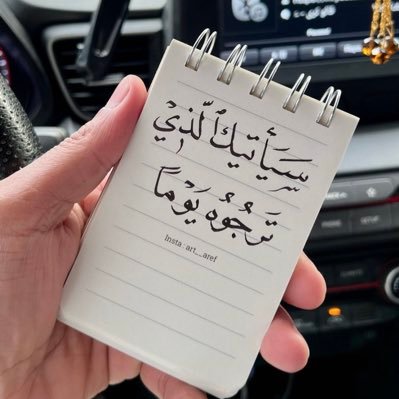 سَيَأتيكَ ٱلّذِيْ
تَرجُوُه يَوْماً
Insta : art__aref